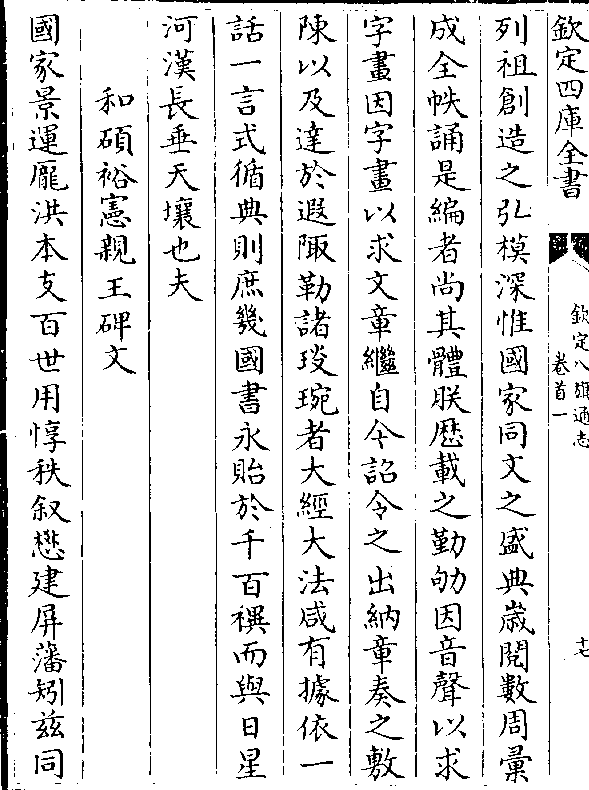 欽定四庫全書
欽定八旗通志
卷首一
十七
列祖創造之弘模深惟國家同文之盛典歲閱數周彙
成全帙誦是編者尚其體朕歷載之勤劬因音聲以求
字畫因字畫以求文章繼自今詔令之出納章奏之敷
陳以及達於遐陬勒諸琰琬者大經大法咸有據依一
話一言式循典則庶幾國書永貽於千百禩而與日星
河漢長垂天壤也夫
和碩裕憲親王碑文
國家景運龐洪本支百世用惇秩叙懋建屏藩矧兹同